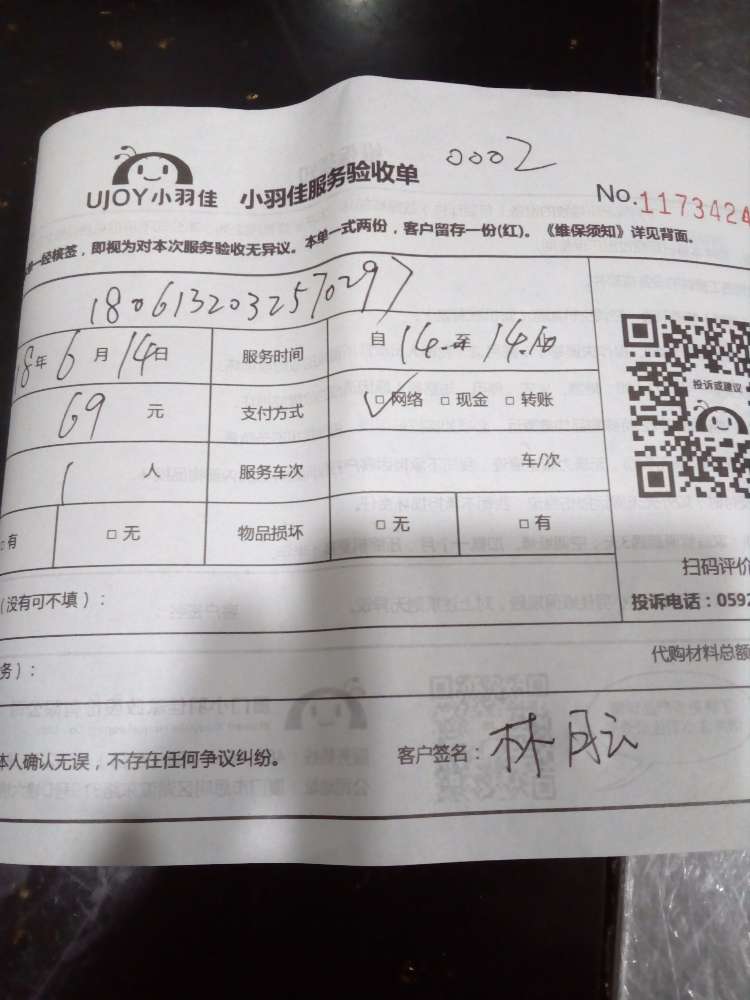 0002
UJOY小羽佳 小羽佳服务验收单
No.1173424
单一经核签，即视为对本次服务验收无异议。本单一式两份，客户留存一份(红)。《维保须知》详见背面。
1806132032570297
18年6月14日 服务时间 自14 至14:10
69元 支付方式 ✓□网络 □现金 □转账
投诉或建议
1人 服务车次 车/次
□有 □无 物品损坏 □无 □有
扫码评价
(没有可不填)：
投诉电话：0592
务)：
代购材料总额
本人确认无误，不存在任何争议纠纷。 客户签名：林